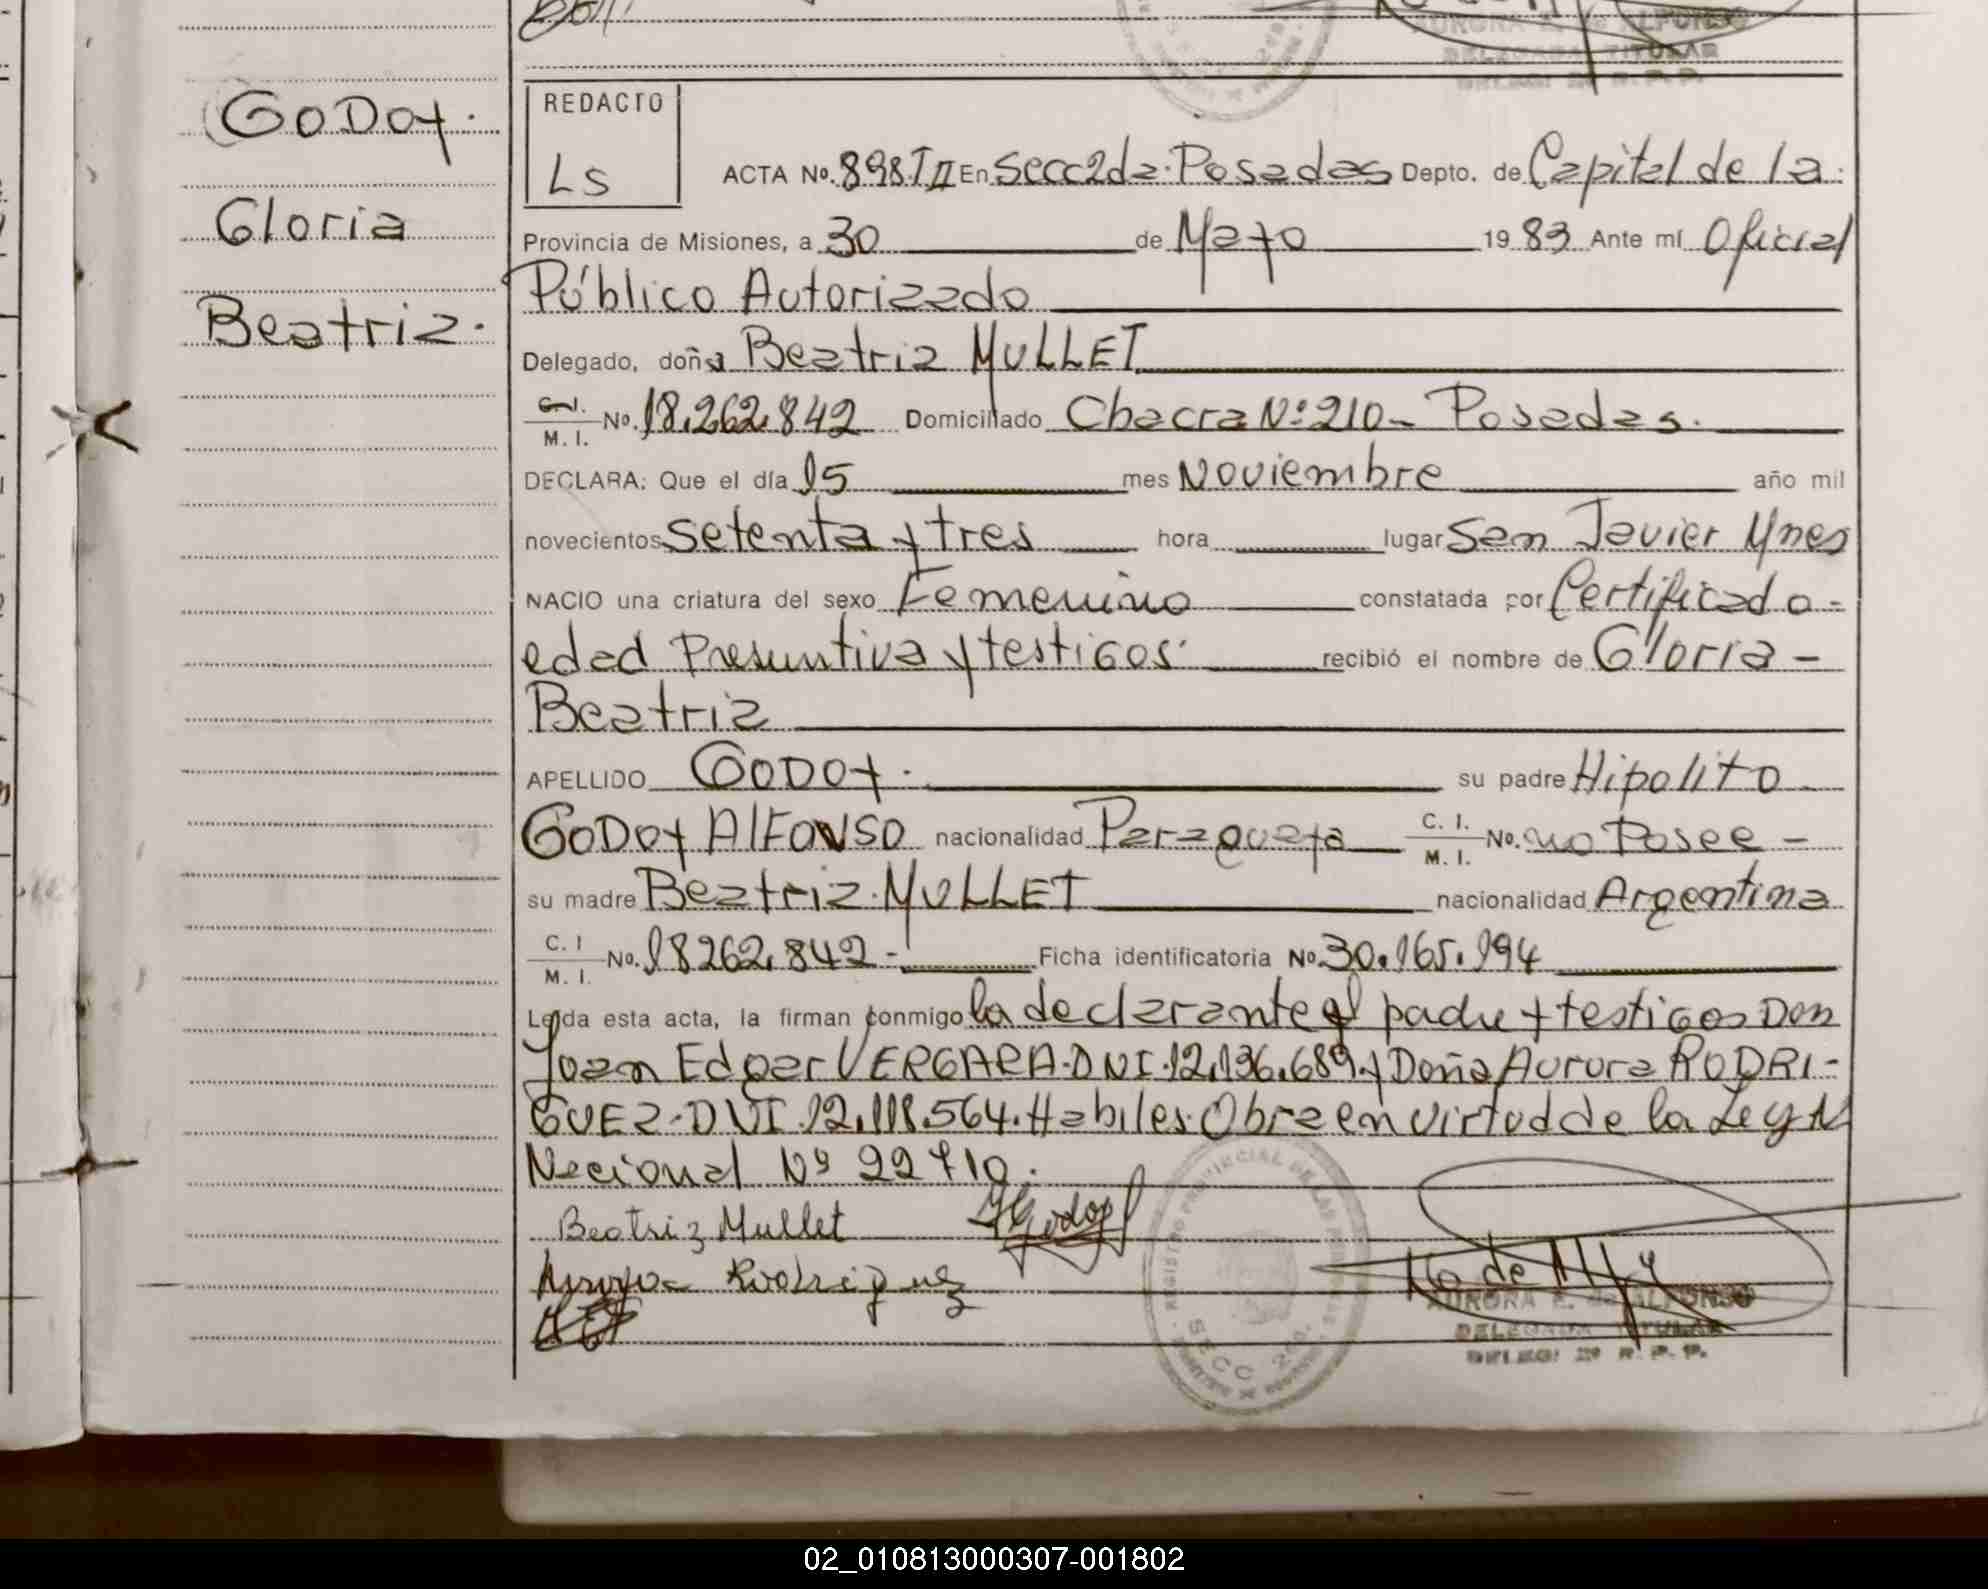 GODOY.
Gloria
Beatriz.
AURORA E. de ALFONSO
DELEGADA TITULAR
DELEG: 2ª R. P. P.
REDACTO
Ls
ACTA No. 898.T II En Secc 2da. Posadas Depto. de Capital de la
Provincia de Misiones, a 30 de Mayo 19 83 Ante mí Oficial
Público Autorizado
Delegado, doña Beatriz MULLET
C. I. M. I. No. 18.262.842 Domiciliado Chacra Nº 210 - Posadas.
DECLARA: Que el día 15 mes Noviembre año mil
novecientos setenta y tres hora lugar San Javier Mnes
NACIO una criatura del sexo Femenino constatada por Certificado
edad Presuntiva y testigos recibió el nombre de Gloria -
Beatriz
APELLIDO GODOY. su padre Hipolito
GODOY ALFONSO nacionalidad Paraguaya C. I. M. I. No. no Posee -
su madre Beatriz MULLET nacionalidad Argentina
C. I M. I. No. 18262.842 - Ficha identificatoria No. 30.165.194
Leída esta acta, la firman conmigo la declarante el padre y testigos Don
Juan Edgar VERGARA. DNI. 12.136.689 y Doña Aurora RODRI-
GUEZ - DNI. 12.118.564. Habiles. Obra en virtud de la Ley N
Nacional Nº 22410.
Beatriz Mullet
HGodoy
Rodriguez
REGISTRO PROVINCIAL DE LAS PERSONAS
SECC 2da.
AURORA E. de ALFONSO
DELEGADA TITULAR
DELEG: 2ª R. P. P.
02_010813000307-001802